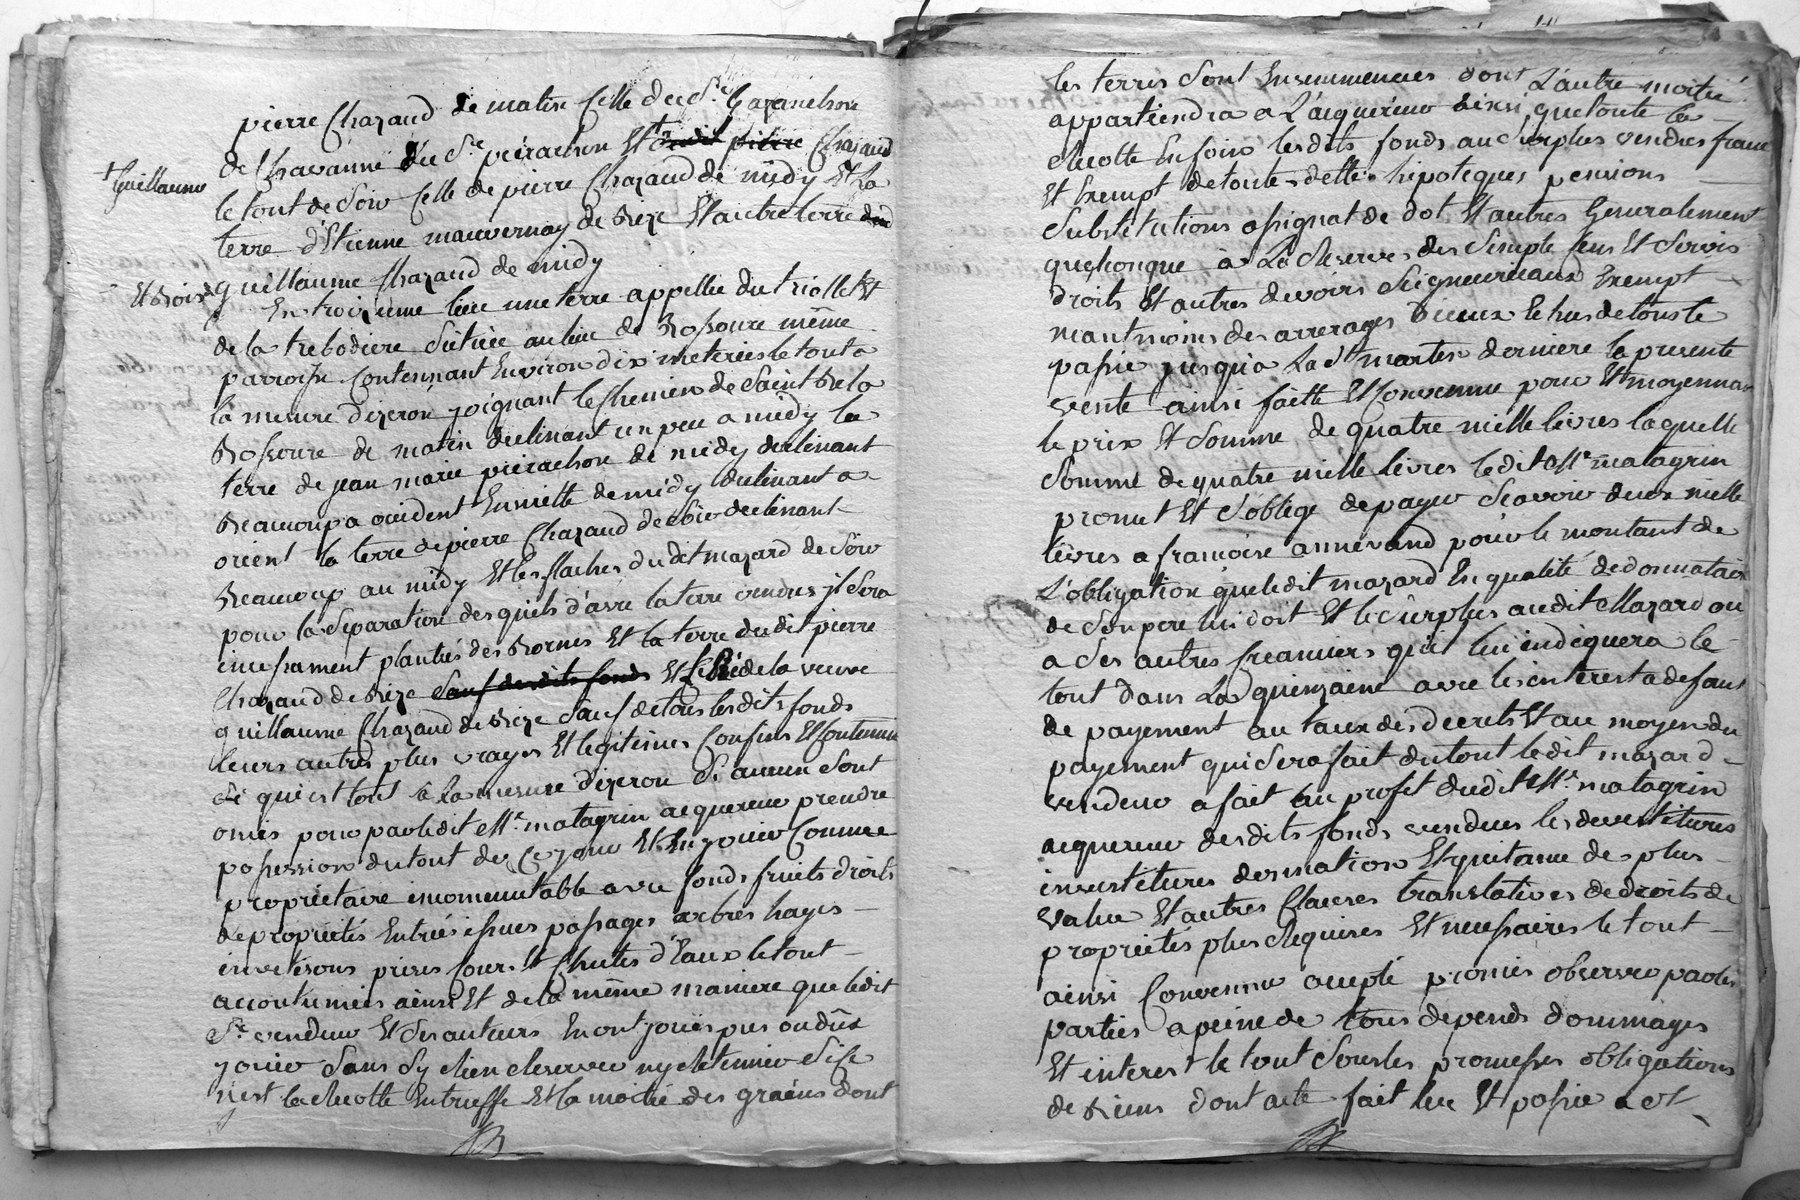 pierre Chazaud de matin Celle du Sr
de Chavanne du Sr peirachon Et pierre Chazaud
+ Guillaume
le tout de Soir Celle de pierre Chazaud de midy Et La
terre d'Etienne mauvernay de Bize Et autre terre dud
guillaume Chazaud de midy
Et Bois
En troizieme lieu une terre appellée du triollet Et
de la trebodiere Scituée au lieu de Bossoure même
parroisse Contennant Environ dix meteries le tout a
la mesure dizeron joignant le Chemin de Saint a la
Bossoure de matin declinant un peu a midy la
terre de jean marie peirachon de midy declinant
Beaucoup a occident Ensuitte de midy declinant a
orient la terre de pierre Chazaud de Soir declinant
Beaucoup au midy Et les flaches dudit mazard de Soir
pour la Separation desquels d'avec la terre vendue jl Sera
incessament plantés des Bornes Et la terre dudit pierre
Chazaud de Bize Sauf desdits fonds Et de la veuve
guillaume Chazaud de Bize Sauf de tous lesdits fonds
leurs autres plus vrayes Et legitimes Confins Et Contenue
Si qui est tout a la mesure dizeron Si aucun Sont
omis pour par ledit Mr. matagrin acquereur prendre
possession du tout des Ce jour Et En jouir Comme
proprietaire incommutable avec fonds fruits droits
de proprietés Entrées issues passages arbres hayes
prises Cours Et Chutes d'Eaux le tout
accoutumées ainsi Et de la même maniere que ledit
Sr vendeur Et Ses auteurs En ont jouis pus ou dûs
jouir Sans Sy Rien Reserver ny Retennir Si Ce
n'est la Recolte En treffle Et la moitié des grains dont
les terres Sont Ensemmencées dont L'autre moitié
appartiendra a L'acquereur ainsi que toute la
Recolte En foin lesdits fonds au Surplus vendus franc
Et Exempt de toute dette hipoteques pensions
Substitutions assignat de dot Et autres Generalement
quelconque à La Reserve des Simple Cens Et Servis
droits Et autres devoirs Seigneuriaux Exempt
neantmoins des arrerages d'iceux le tous de toute
passé jusqu'a La St. martin derniere la presente
vente ainsi faitte Et Convenue pour Et moyennant
le prix Et Somme de quatre mille livres laquelle
Somme de quatre mille livres ledit Mr. matagrin
promet Et S'oblige de payer Scavoir deux mille
livres a francoise annevand pour le montant de
L'obligation que ledit mazard En qualité de donnataire
de Son pere lui doit Et le Surplus audit Mazard ou
a Ses autres Creanciers qu'il lui indiquera le
tout dans La quinzaine avec les interest a defaut
de payement au taux des decrets Et au moyen du
payement qui Sera fait du tout ledit mazard
vendeur a fait au profit dudit Mr. matagrin
acquereur desdits fonds vendues les devestitures
investitures desmation Et quitance de plus
value Et autres Clauses translatives de droits de
proprietés plus Requises Et necessaires le tout
ainsi Convenu accepté promis observer par les
parties a peine de tous depends dommages
Et interest le tout Sous les promesses obligations
de Biens dont acte fait leu Et passé a St